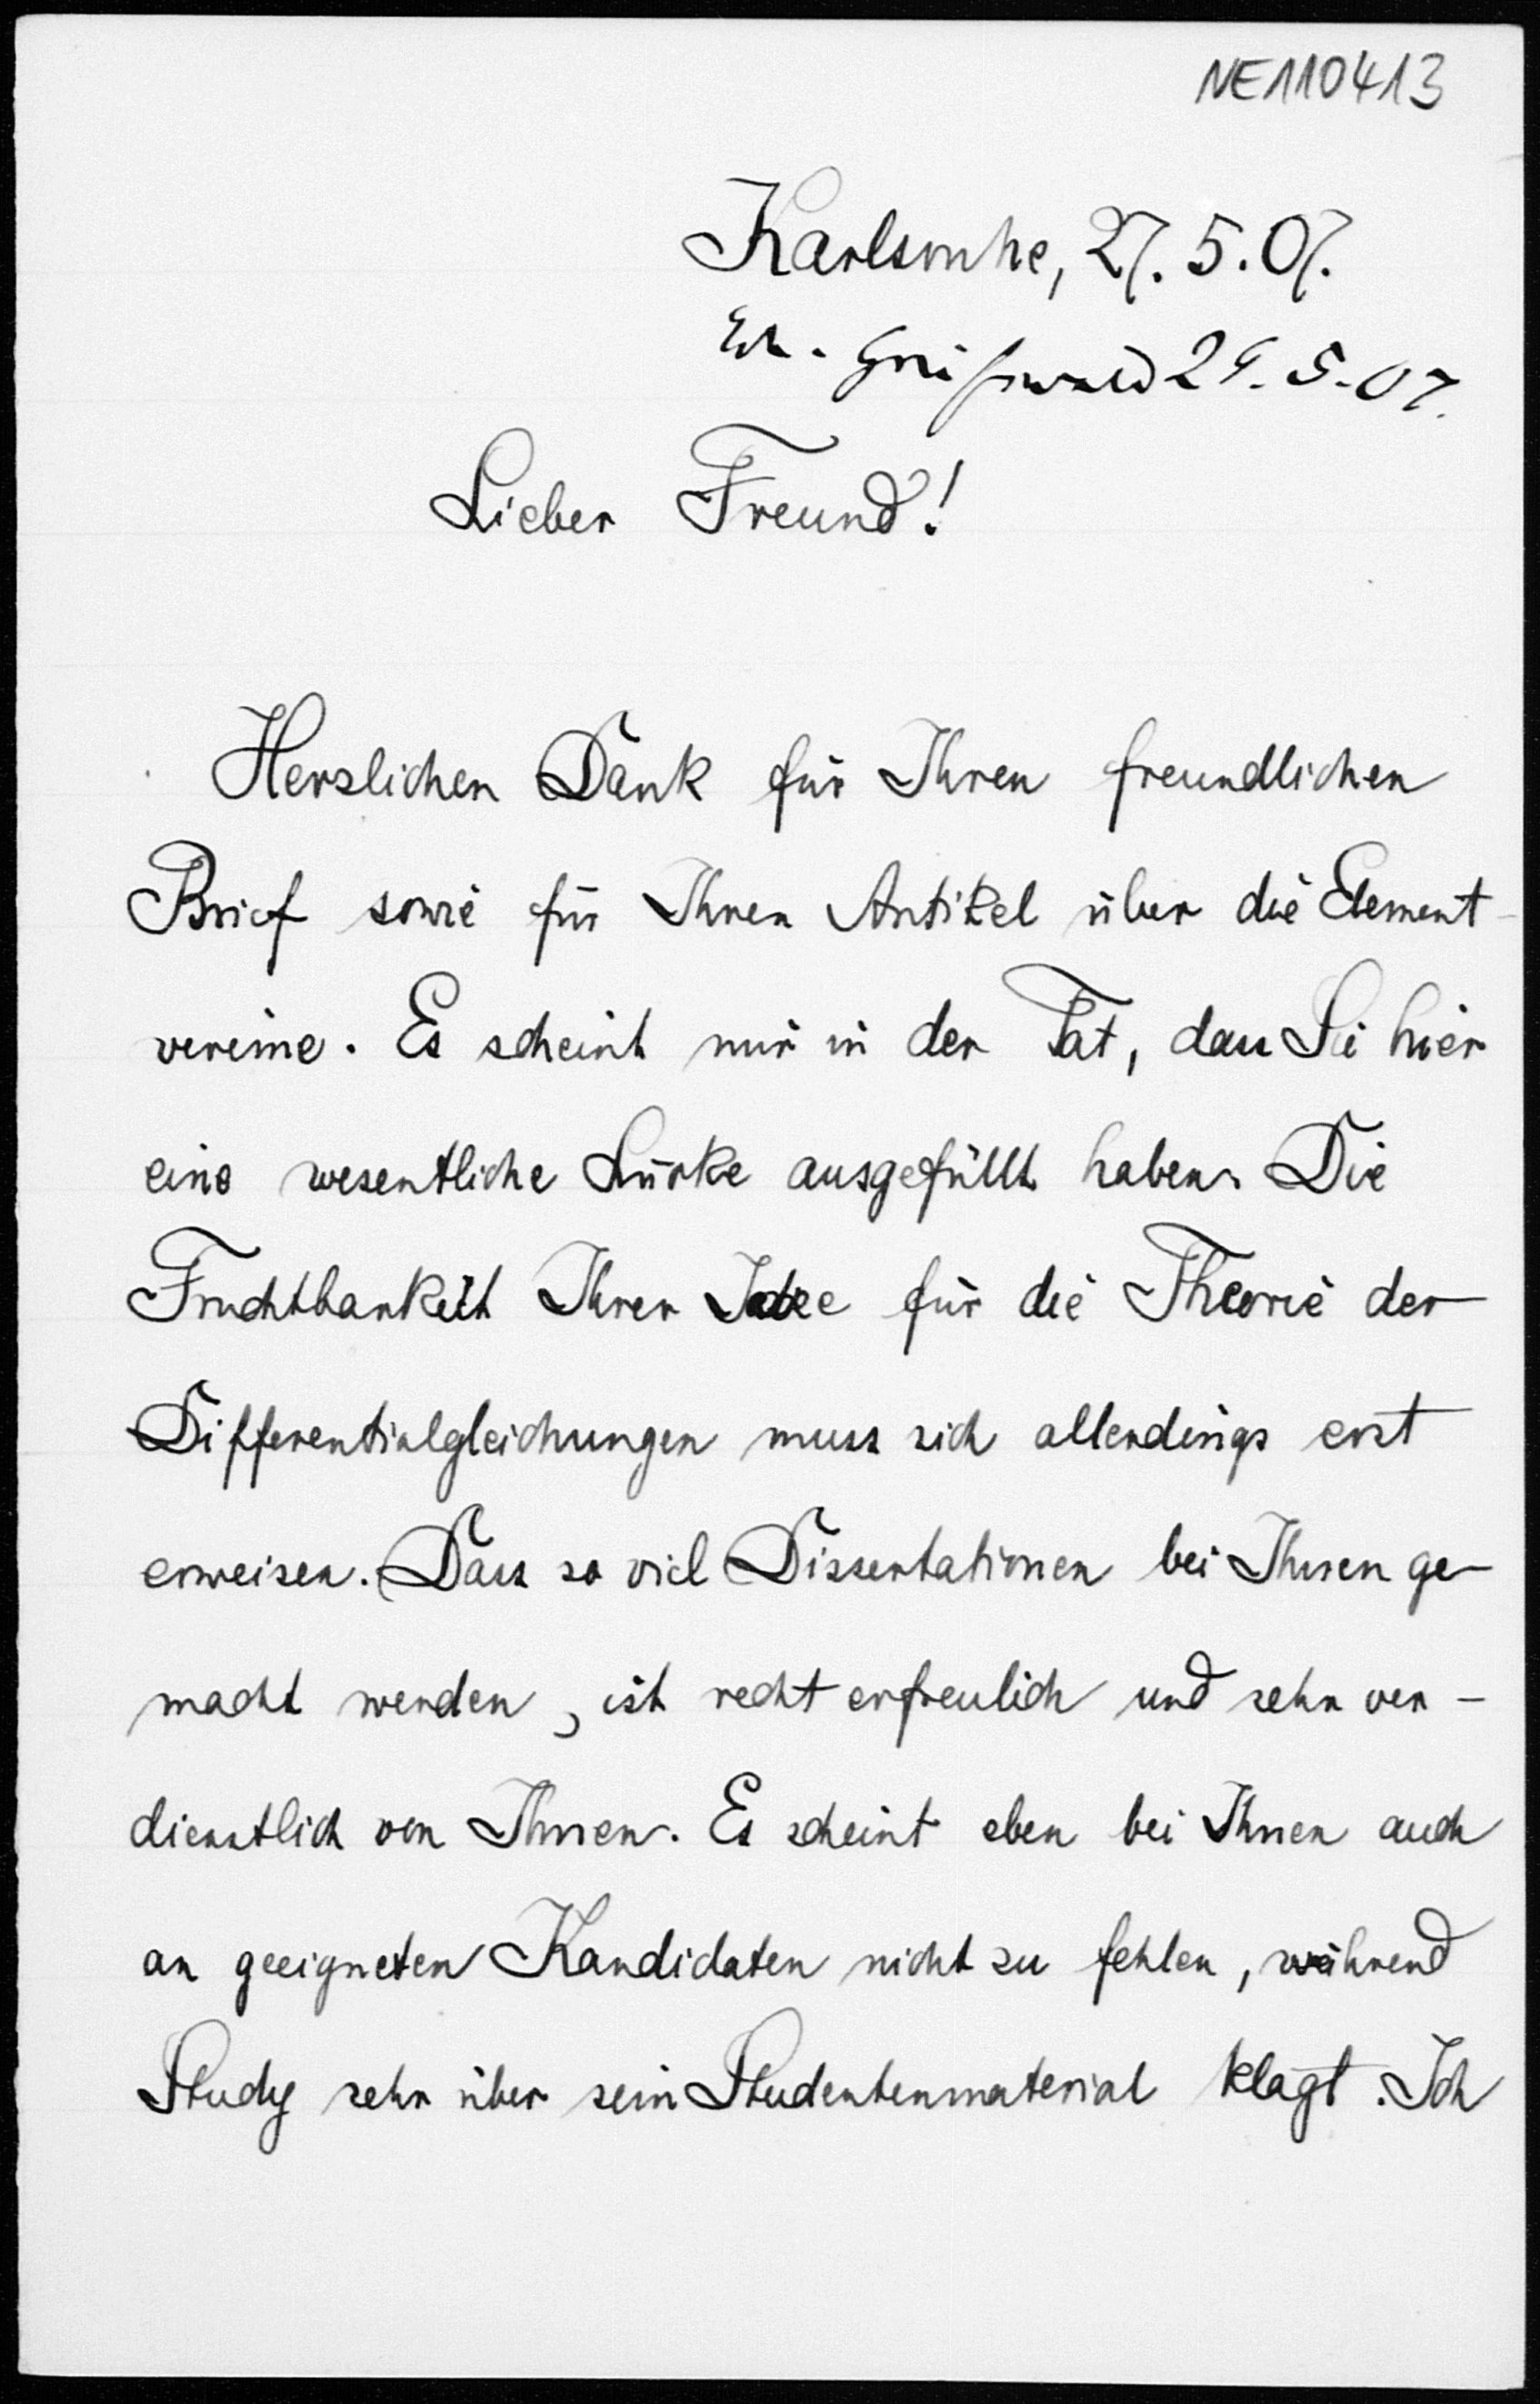 NE110413
Karlsruhe, 27. 5. 07.
Er. Greifswald 29. 5. 07.
Lieber Freund!
Herzlichen Dank für Ihren freundlichen
Brief sowie für Ihren Artikel über die Element-
vereine. Es scheint mir in der Tat, dass Sie hier
eine wesentliche Lücke ausgefüllt haben. Die
Fruchtbarkeit Ihrer Idee für die Theorie der
Differentialgleichungen muss sich allerdings erst
erweisen. Dass so viel Dissertationen bei Ihnen ge-
macht werden, ist recht erfreulich und sehr ver-
dienstlich von Ihnen. Es scheint eben bei Ihnen auch
an geeigneten Kandidaten nicht zu fehlen, während
Study sehr über sein Studentenmaterial klagt. Ich